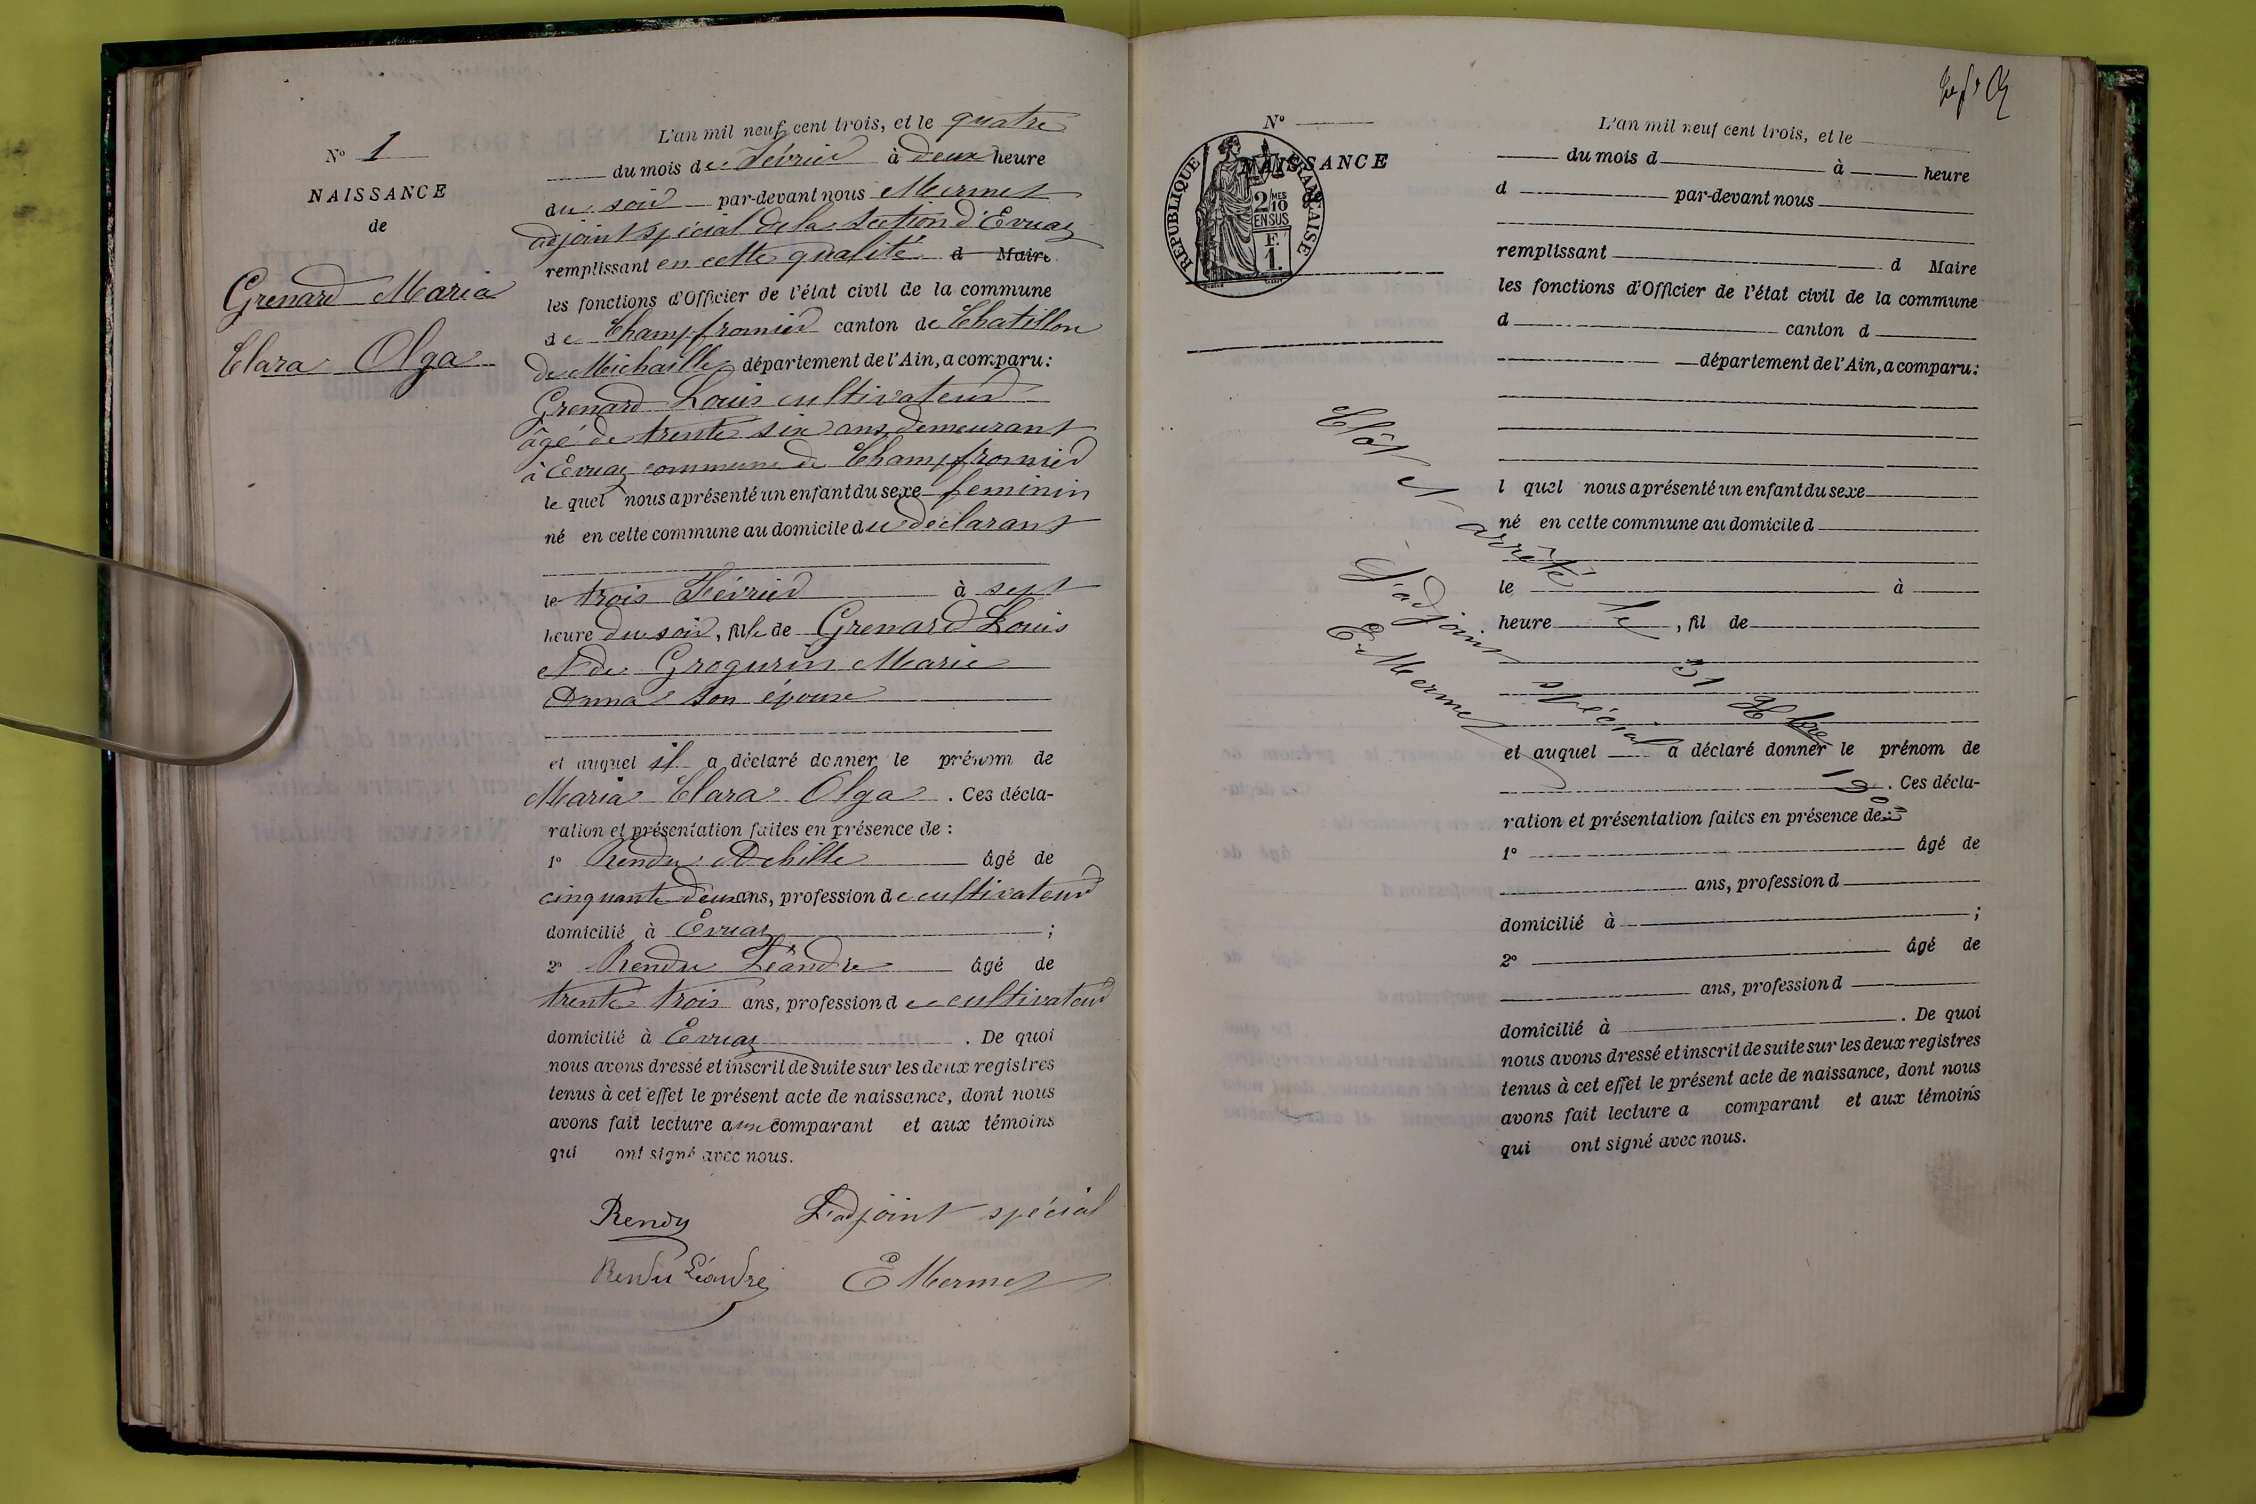 N° 1
NAISSANCE
de
Grenard Maria
Clara Olga
L'an mil neuf cent trois, et le quatre
du mois de Février à deux heure
du soir par-devant nous Mermet
adjoint spécial de la section d'Evuaz
remplissant en cette qualité d Maire
les fonctions d'Officier de l'état civil de la commune
de Champfromier canton de Chatillon
de Michaille département de l'Ain, a comparu:
Grenard Louis cultivateur
âgé de trente six ans demeurant
à Evuaz commune de Champfromier
lequel nous a présenté un enfant du sexe feminin
né en cette commune au domicile du déclarant
le trois Février à sept
heure du soir, fille de Grenard Louis
et de Grogurin Marie
Anna son épouse
et auquel il a déclaré donner le prénom de
Maria Clara Olga. Ces décla-
ration et présentation faites en présence de :
1° Rendu Achille âgé de
cinquante deux ans, profession de cultivateur
domicilié à Evuaz ;
2° Rendu Léandre âgé de
trente trois ans, profession de cultivateur
domicilié à Evuaz. De quoi
nous avons dressé et inscrit de suite sur les deux registres
tenus à cet effet le présent acte de naissance, dont nous
avons fait lecture au comparant et aux témoins
qui ont signé avec nous.
Rendu L'adjoint spécial
Rendu Léandre E Mermet
N°
NAISSANCE
RÉPUBLIQUE FRANÇAISE
2/10 MES
EN SUS
F.
1.
L'an mil neuf cent trois, et le
du mois d à heure
d par-devant nous
remplissant d Maire
les fonctions d'Officier de l'état civil de la commune
d canton d
département de l'Ain, a comparu:
l quel nous a présenté un enfant du sexe
né en cette commune au domicile d
le à
heure , fil de
et auquel a déclaré donner le prénom de
. Ces décla-
ration et présentation faites en présence de:
1° âgé de
ans, profession d
domicilié à ;
2° âgé de
ans, profession d
domicilié à . De quoi
nous avons dressé et inscrit de suite sur les deux registres
tenus à cet effet le présent acte de naissance, dont nous
avons fait lecture a comparant et aux témoins
qui ont signé avec nous.
Clôt et arrêté le 31 Xbre 1903
L'adjoint spécial
E Mermet